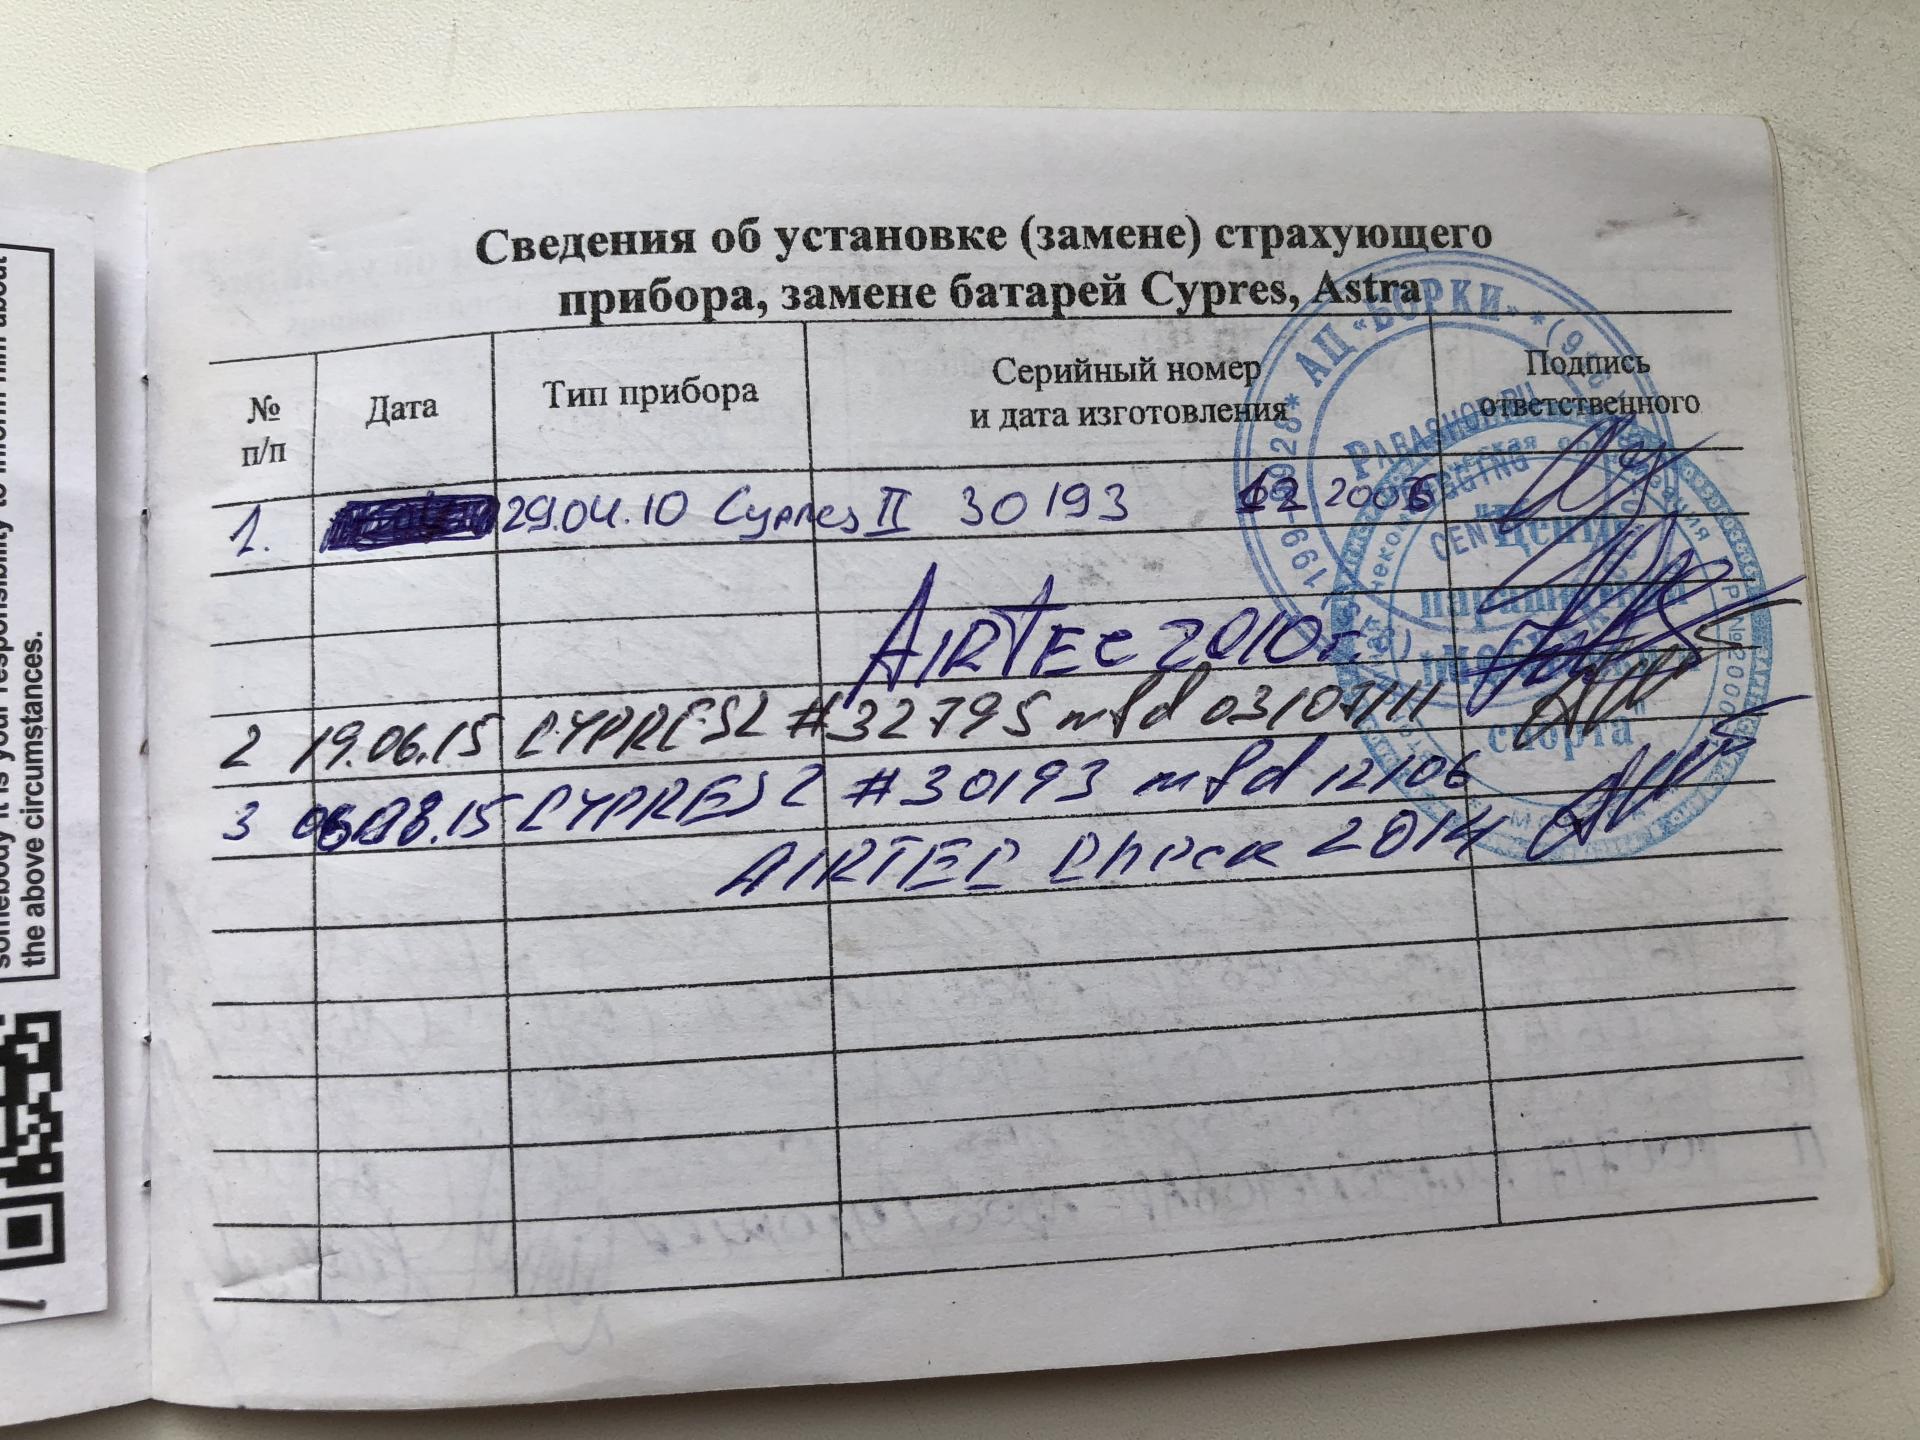 somebody it is your responsibility to inform him about
the above circumstances.
Сведения об установке (замене) страхующего
прибора, замене батарей Cypres, Astra
№ п/п
Дата
Тип прибора
Серийный номер
и дата изготовления
Подпись
ответственного
1. 29.04.10 Cypres II 30193 12 2006
AIRTEC 2010г.
2 19.06.15 CYPRES2 #32795 mfd 03/07/11
3 08.15 CYPRES2 #30193 mfd 12/06
AIRTEC Check 2014
АЦ «БОРКИ»
PARASHOP.RU
RIGGING
CENTER
"Центр
парашютного
спорта"